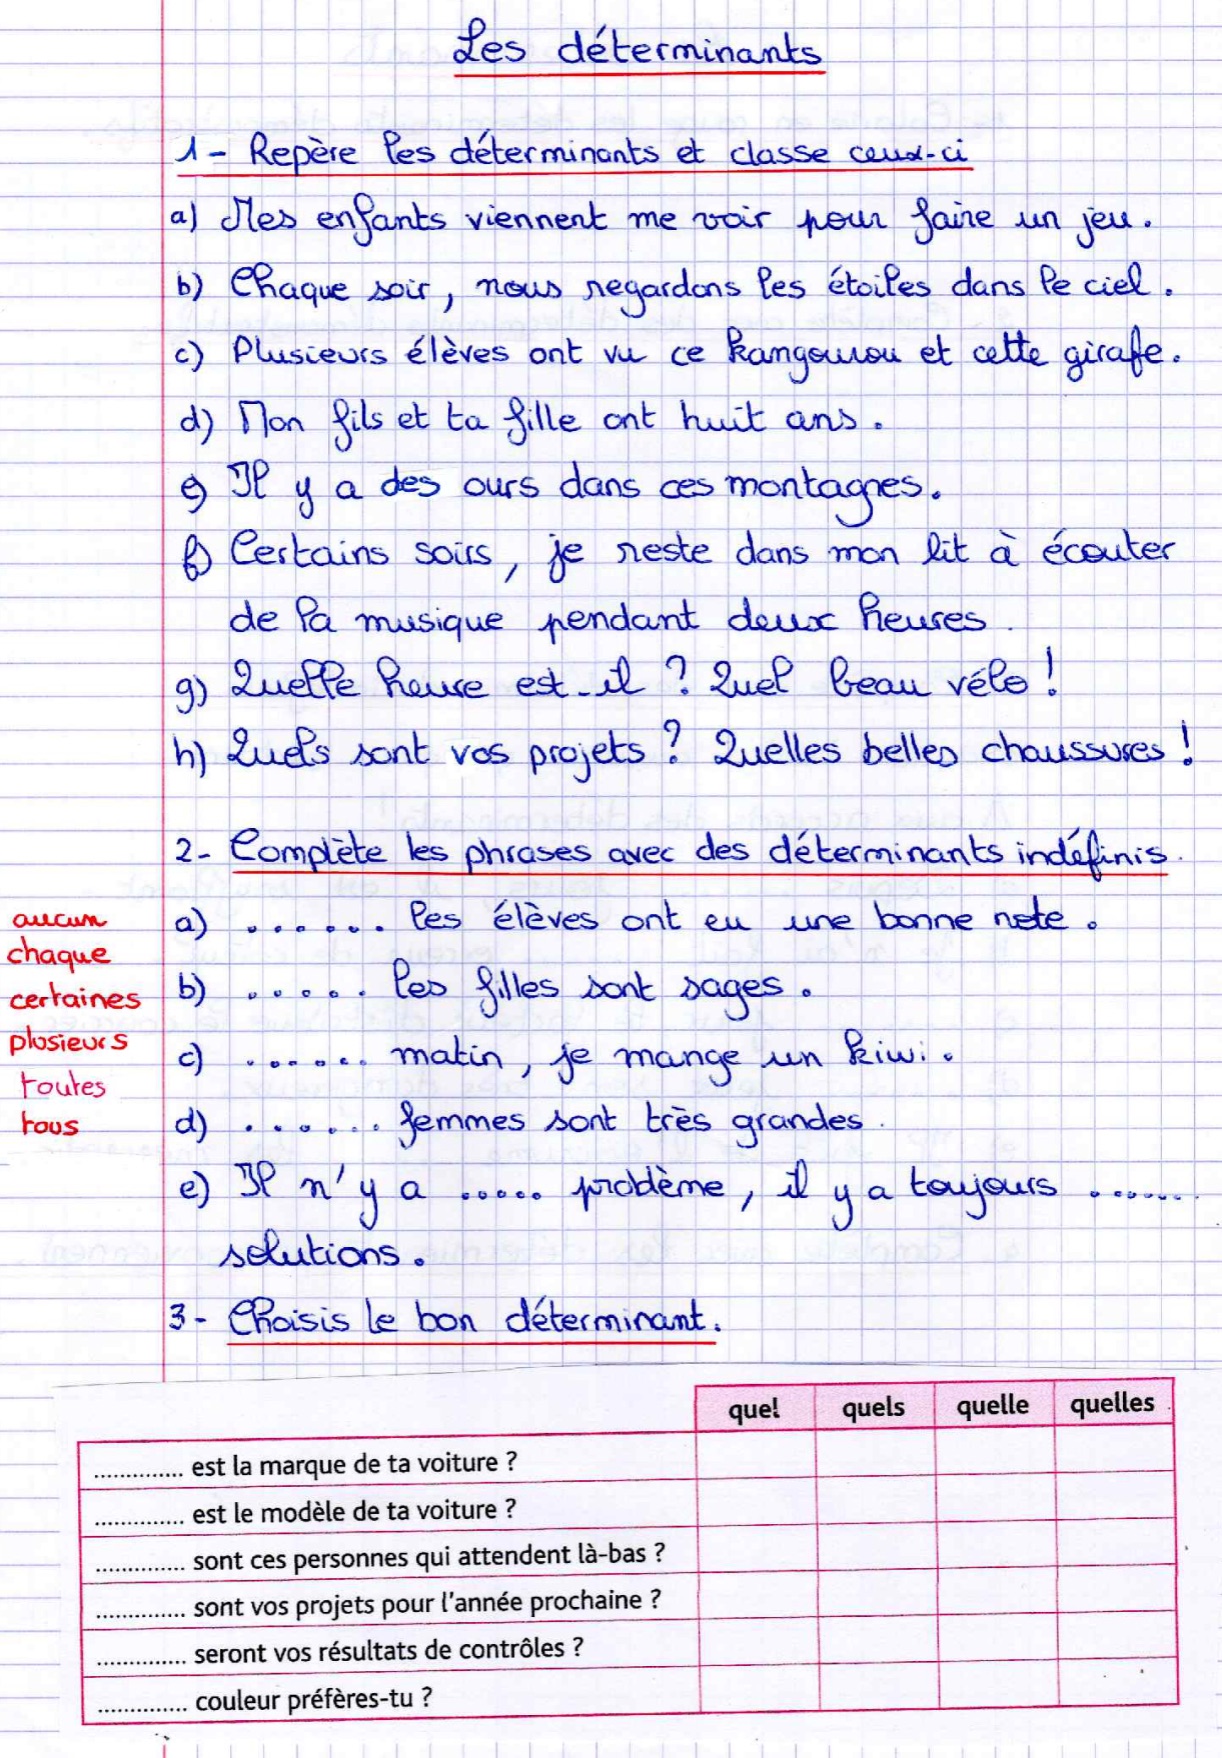 Les déterminants
1 - Repère les déterminants et classe ceux-ci
a) Mes enfants viennent me voir pour faire un jeu.
b) Chaque soir, nous regardons les étoiles dans le ciel.
c) Plusieurs élèves ont vu ce kangourou et cette girafe.
d) Mon fils et ta fille ont huit ans.
e) Il y a des ours dans ces montagnes.
f) Certains soirs, je reste dans mon lit à écouter
de la musique pendant deux heures.
g) Quelle heure est-il ? Quel beau vélo !
h) Quels sont vos projets ? Quelles belles chaussures !
2- Complète les phrases avec des déterminants indéfinis.
aucun
chaque
certaines
plusieurs
toutes
tous
a) ...... les élèves ont eu une bonne note.
b) ..... les filles sont sages.
c) ...... matin, je mange un kiwi.
d) ....... femmes sont très grandes.
e) Il n'y a ..... problème, il y a toujours .......
solutions.
3- Choisis le bon déterminant.
quel quels quelle quelles
.............. est la marque de ta voiture ?
.............. est le modèle de ta voiture ?
.............. sont ces personnes qui attendent là-bas ?
.............. sont vos projets pour l'année prochaine ?
.............. seront vos résultats de contrôles ?
.............. couleur préfères-tu ?